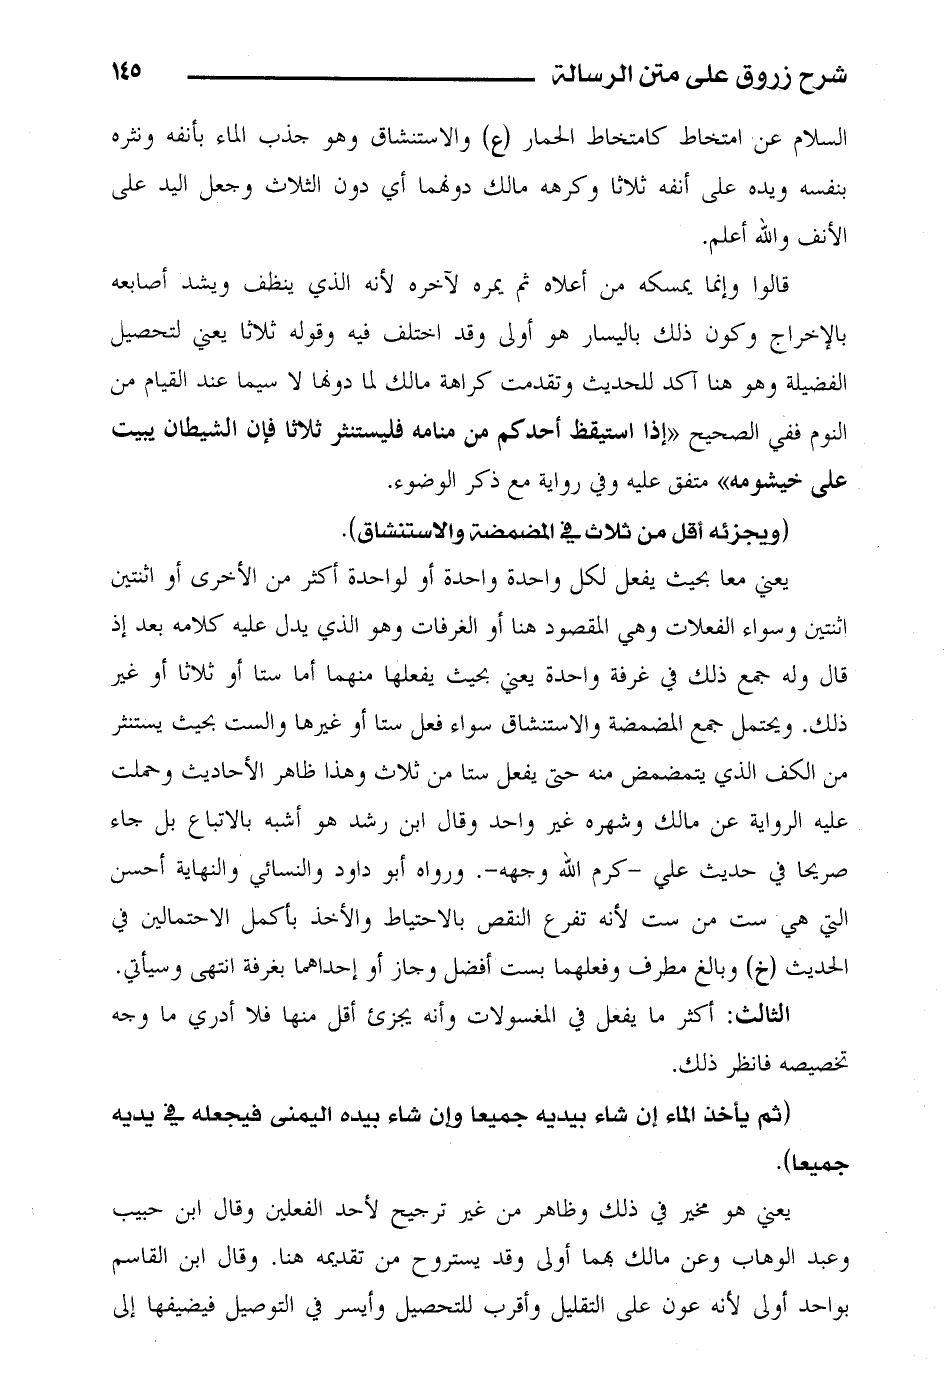 شرح زروق على متن الرسالة ١٤٥
السلام عن امتخاط كامتخاط الحمار (ع) والاستنشاق وهو جذب الماء بأنفه ونثره
بنفسه ويده على أنفه ثلاثا وكرهه مالك دونهما أي دون الثلاث وجعل اليد على
الأنف والله أعلم.
قالوا وإنما يمسكه من أعلاه ثم يمره لآخره لأنه الذي ينظف ويشد أصابعه
بالإخراج وكون ذلك باليسار هو أولى وقد اختلف فيه وقوله ثلاثا يعني لتحصيل
الفضيلة وهو هنا آكد للحديث وتقدمت كراهة مالك لما دونها لا سيما عند القيام من
النوم ففي الصحيح «إذا استيقظ أحدكم من منامه فليستنثر ثلاثا فإن الشيطان يبيت
على خيشومه» متفق عليه وفي رواية مع ذكر الوضوء.
(ويجزئه أقل من ثلاث في المضمضة والاستنشاق).
يعني معا بحيث يفعل لكل واحدة واحدة أو لواحدة أكثر من الأخرى أو اثنتين
اثنتين وسواء الفعلات وهي المقصود هنا أو الغرفات وهو الذي يدل عليه كلامه بعد إذ
قال وله جمع ذلك في غرفة واحدة يعني بحيث يفعلها منهما أما ستا أو ثلاثا أو غير
ذلك. ويحتمل جمع المضمضة والاستنشاق سواء فعل ستا أو غيرها والست بحيث يستنثر
من الكف الذي يتمضمض منه حتى يفعل ستا من ثلاث وهذا ظاهر الأحاديث وحملت
عليه الرواية عن مالك وشهره غير واحد وقال ابن رشد هو أشبه بالاتباع بل جاء
صريحا في حديث علي -كرم الله وجهه-. ورواه أبو داود والنسائي والنهاية أحسن
التي هي ست من ست لأنه تفرع النقص بالاحتياط والأخذ بأكمل الاحتمالين في
الحديث (خ) وبالغ مطرف وفعلهما بست أفضل وجاز أو إحداهما بغرفة انتهى وسيأتي.
الثالث: أكثر ما يفعل في المغسولات وأنه يجزئ أقل منها فلا أدري ما وجه
تخصيصه فانظر ذلك.
(ثم يأخذ الماء إن شاء بيديه جميعا وإن شاء بيده اليمنى فيجعله في يديه
جميعا).
يعني هو مخير في ذلك وظاهر من غير ترجيح لأحد الفعلين وقال ابن حبيب
وعبد الوهاب وعن مالك بهما أولى وقد يستروح من تقديمه هنا. وقال ابن القاسم
بواحد أولى لأنه عون على التقليل وأقرب للتحصيل وأيسر في التوصيل فيضيفها إلى